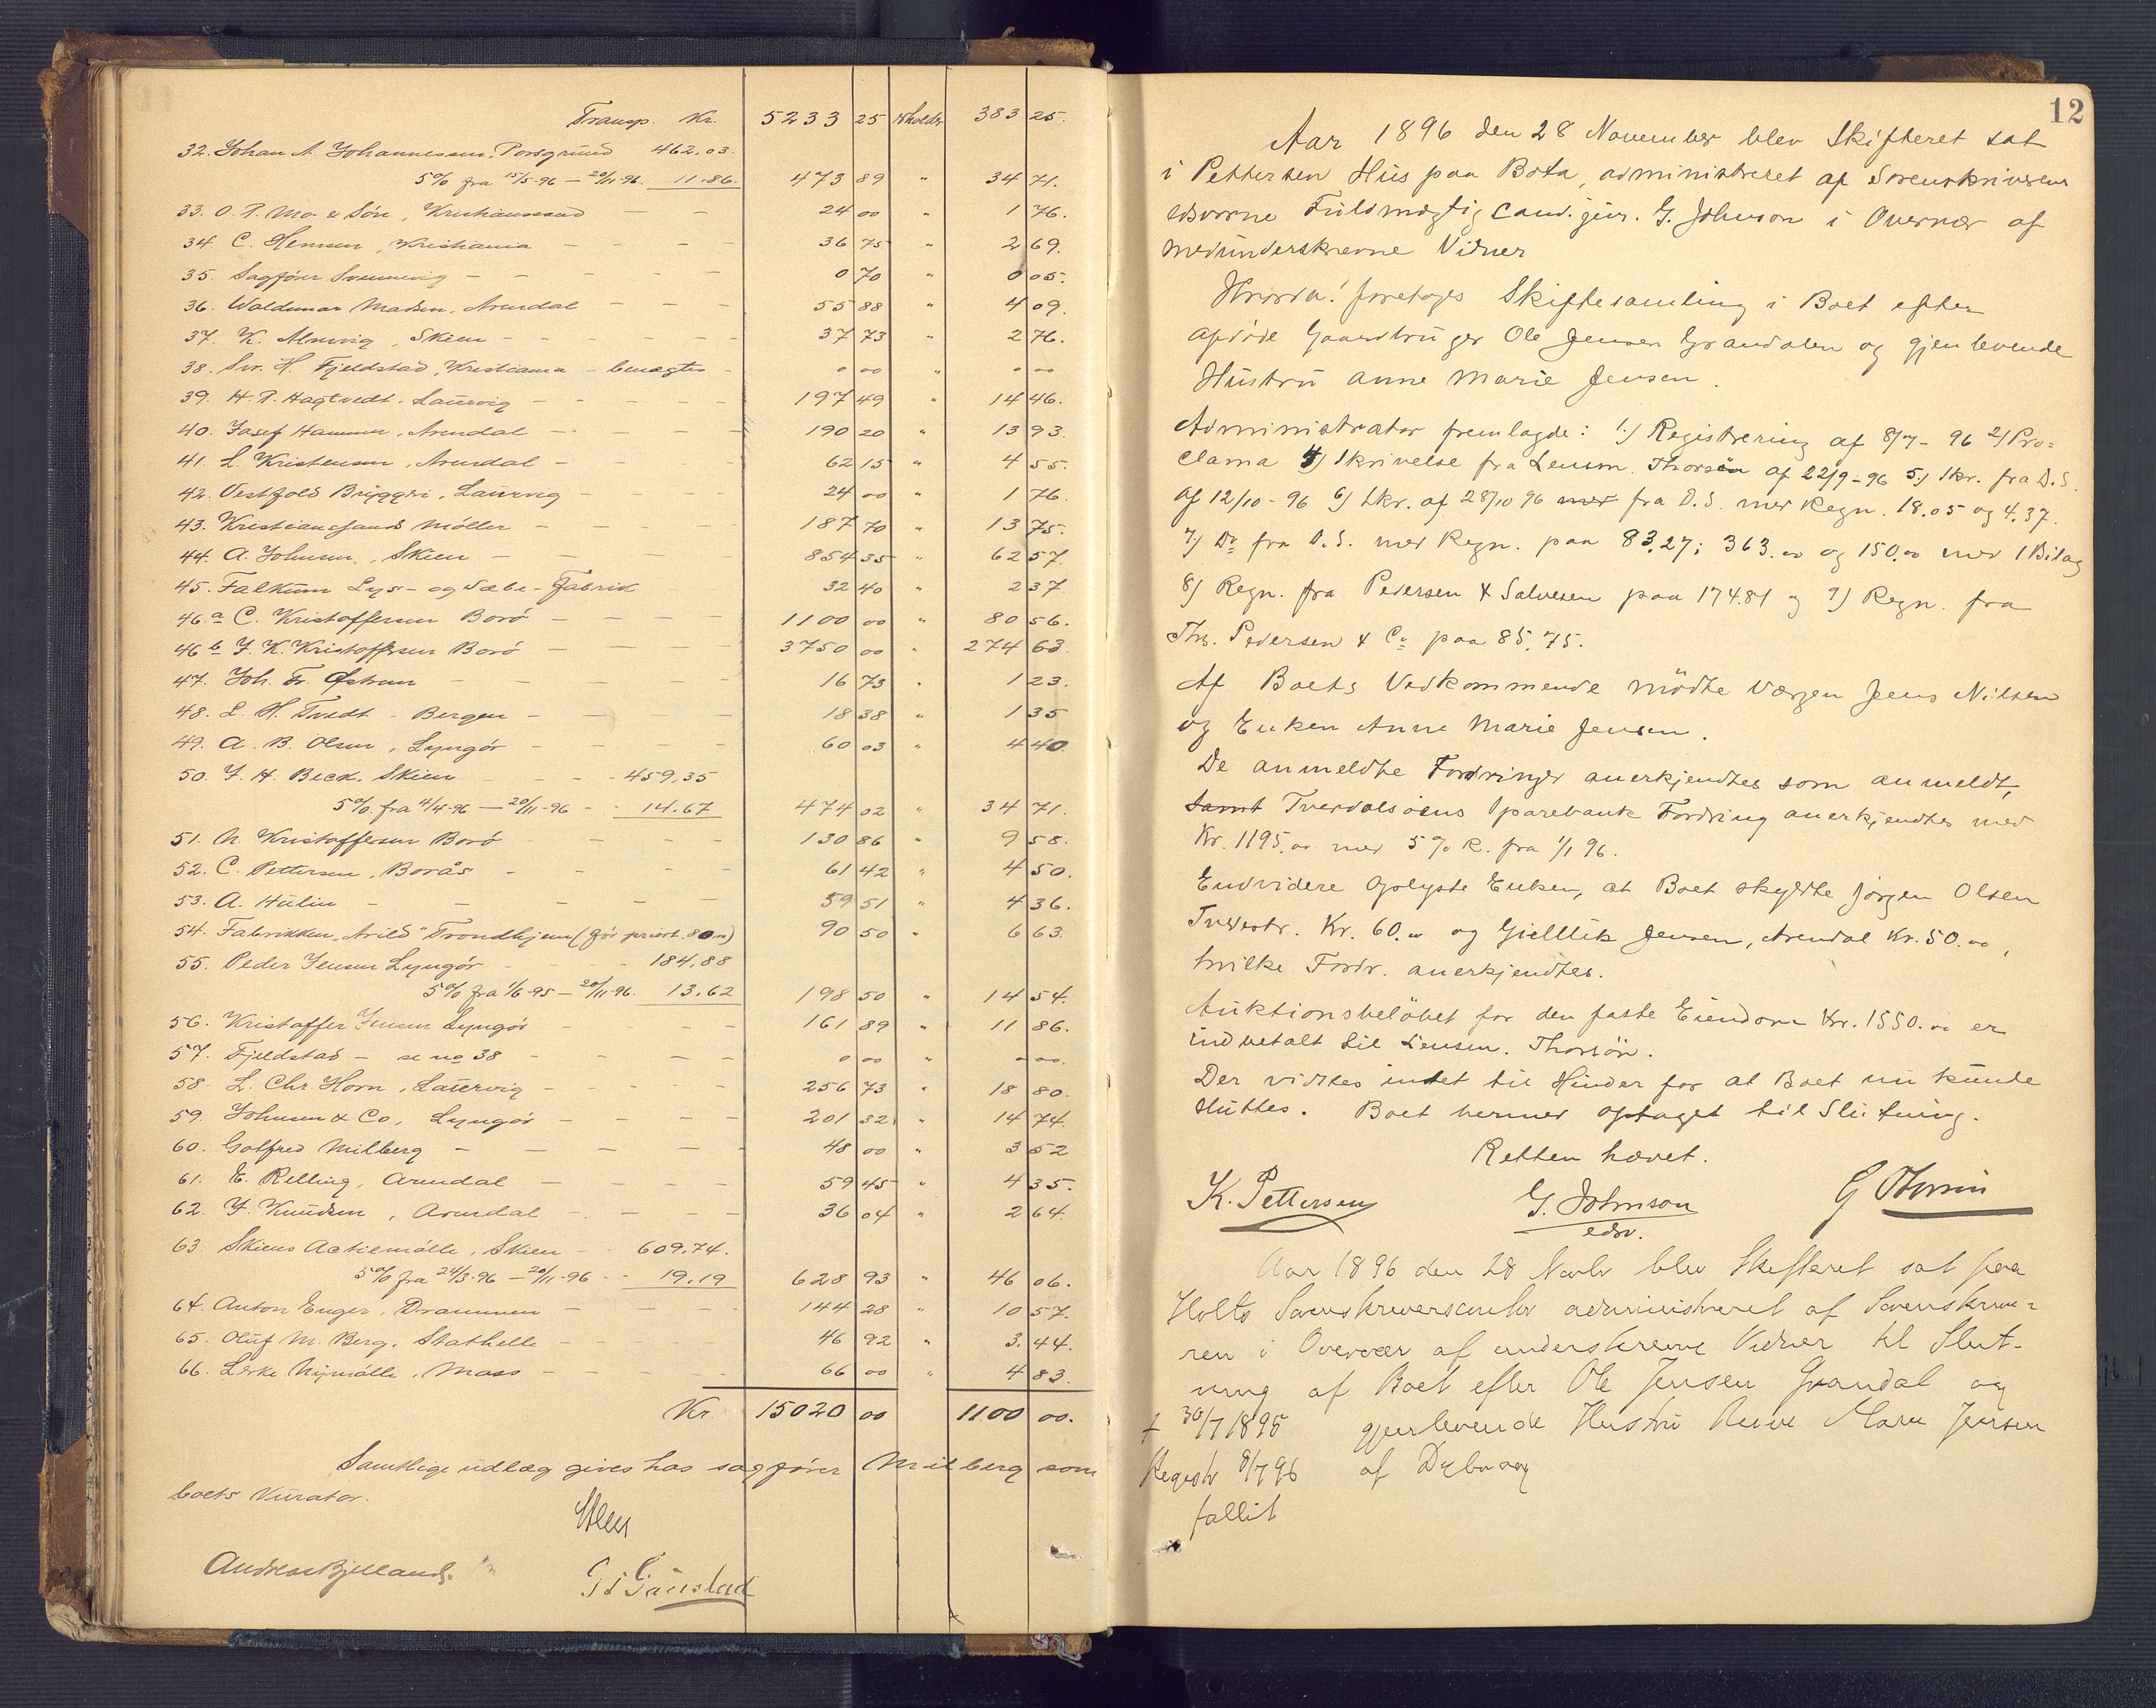 Transp. Kr. 5233 25 erholder 383 25.
32. Johan A Johannessen, Porsgrund 462.03.
5% fra 15/5-96 — 20/11-96. 11.86. 473 89 " 34 71.
33. O. P. Mo & Sön, Kristianssand — — 24 00 " 1 76.
34. C. Hensen, Kristiania — — — — 36 75 " 2 69.
35. Sagfører Svennevig — — — — 0 70 " 0 05.
36. Waldemar Madsen, Arendal — — — 55 88 " 4 09.
37. K. Almvig, Skien — — — — — 37 73 " 2 76.
38. Svr. H. Fjeldstad, Kristiania — benægtes — 0 00 " 0 00
39. H. P. Hagtvedt. Laurvig — — — — 197 49 " 14 46.
40. Josef Hammer, Arendal — — — — 190 20 " 13 93.
41. L. Kristensen, Arendal — — — — 62 15 " 4 55.
42. Vestfold Bryggeri, Laurvig — — — — 24 00 " 1 76.
43. Kristianssands Møller — — — — 187 70 " 13 75.
44. A. Johnsen, Skien — — — 854 35 " 62 57.
45. Falkum Lys- og Sæbe-Fabrik — 32 40 " 2 37
46 a C. Kristoffersen Borö — — — — 1100 00 " 80 56.
46 b J. K. Kristoffersen Borö — — — — 3750 00 " 274 63.
47. Joh. Fr. Østrem — — — — — 16 73 " 1 23.
48. L. H. Tvedt - Bergen — — — — 18 38 " 1 35
49. A. B. Olsen, Lyngör — — — — 60 03 " 4 40.
50. J. H. Beck. Skien — — — 459.35
5% fra 4/4-96 — 20/11-96 — 14.67 474 02 " 34 71.
51. N. Kristoffersen Borö — — — — 130 86 " 9 58.
52. C. Pettersen, Borås — — — — 61 42 " 4 50.
53. A. Hulin — — — — — 59 51 " 4 36.
54. Fabrikken „Arild" Trondhjem (før priort. 80.00) 90 50 " 6 63.
55. Peder Jensen Lyngör — — — 184.88
5% fra 1/6-95 — 20/11-96. 13.62 198 50 " 14 54.
56. Kristoffer Jensen Lyngör — — — 161 89 " 11 86.
57. Fjeldstad — se no 38 — — — 0 00 " 0 00.
58. L. Chr. Horn, Laurvig — — — — 256 73 " 18 80.
59. Johnsen & Co, Lyngör — — — — 201 32 " 14 74.
60. Gotfred Milberg — — — — — 48 00 " 3 52
61. E. Relling, Arendal — — — — 59 45 " 4 35.
62. J. Knudsen, Arendal — — — — 36 04 " 2 64.
63. Skiens Actiemölle, Skien — — 609.74.
5% fra 24/3-96 — 20/11-96 — 19.19 628 93 " 46 06.
64. Anton Enger, Drammen — — — 144 28 " 10 57.
65. Oluf M. Berg, Stathelle — — — 46 92 " 3. 44.
66. Lerke Nymölle, Moss — — — — 66 00 " 4 83.
Kr. 15020 00 1100 00.
Samtlige udlæg gives hos sagfører Milberg som
boets Kurator.
Andreas Bjelland.
12
Aar 1896 den 28 November blev Skifteret sat
i Pettersen Hus paa Bota, administreret af Sorenskriverens
edsvorne Fuldmægtig cand. jur. G. Johnson i Overvær af
medunderskrevne Vidner
Hvorda! foretoges Skiftesamling i Boet efter
afdøde Gaardbruger Ole Jensen Grandalen og gjenlevende
Hustru Anne Marie Jensen.
Administrator fremlagde: 1.) Registrering af 8/7-96 2) Pro=
clama 4) Skrivelse fra Lensm. Thorsön af 22/9-96 5.) Skr. fra D.S.
af 12/10-96 6) Skr. af 28/10 96 med fra D.S. med Regn. 18.05 og 4.37.
7.) Do fra D.S. med Regn. paa 83.27; 363.00 og 150.00 med 1 Bilag
8) Regn. fra Pedersen & Salvesen paa 174.81 og 9) Regn. fra
Ths. Pedersen & Co paa 85.75.
Af Boets Vedkommende mödte Værgen Jens Nilsen
og Enken Anne Marie Jensen.
De anmeldte Fordringer anerkjendtes som anmeldt,
samt Tverdalsöens Sparebank Fordring anerkjendtes med
Kr. 1195.00 med 5% R. fra 1/1 96.
Endvidere oplyste Enken, at Boet skyldte Jörgen Olsen
Tvedestr. Kr. 60.00 og Jensen, Arendal Kr. 50.00,
hvilke Fordr. anerkjendtes.
Auktionsbelöbet for den faste Eiendom Kr. 1550.00 er
indbetalt til Lensm. Thorsön.
Der vidstes intet til Hinder for at Boet nu kunde
sluttes. Boet bermed optaget til Slutning.
Retten hævet.
K. Pettersen G. Johnson
edsv.
Aar 1896 den 28 Novbr blev Skifteret sat paa
Holts Sorenskrivercontor administreret af Sorenskrive=
ren i Overvær af underskrevne Vidner til Slut-
ning af Boet efter Ole Jensen Grandal og
† 30/7 1895 gjenlevende Hustru Anne Marie Jensen
Registr 8/7 96 af Dybvaag
fallit